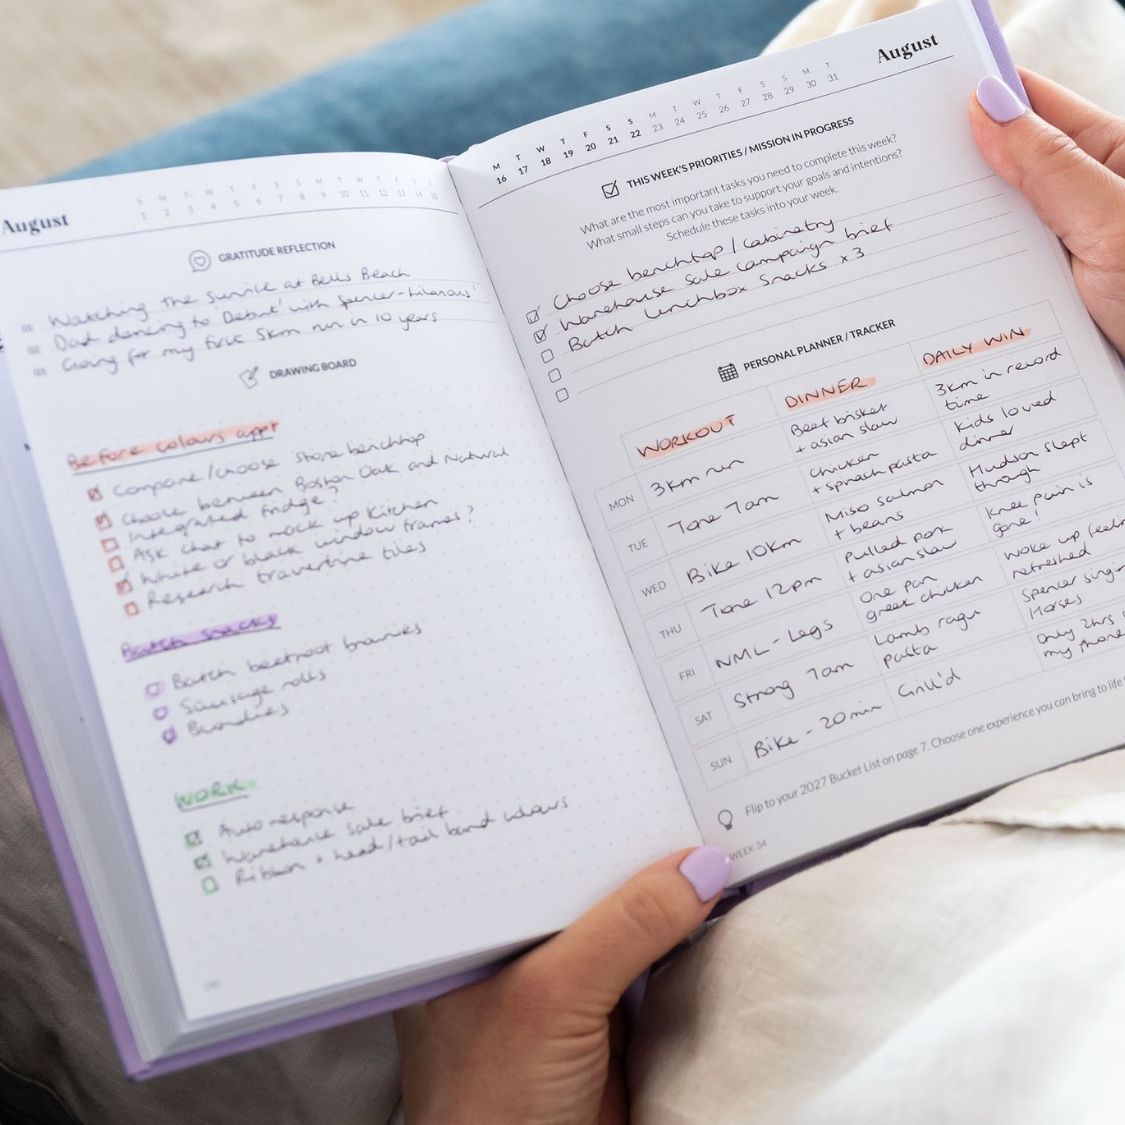 August
S M T W T F S S M T W T F S
1 2 3 4 5 6 7 8 9 10 11 12 13 14 15
GRATITUDE REFLECTION
Watching the sunrise at Bells Beach
Dad dancing to 'Debut' with Spencer - hilarious!
Going for my first 5km run in 10 years
DRAWING BOARD
Before colours appt
Compare/choose stone benchtop
Choose between Boston Oak and Natural
Integrated fridge?
Ask chat to mock up kitchen
White or black window frames?
Research travertine tiles
Batch snacks
Batch beetroot brownies
Sausage rolls
Brownies
WORK
Auto response
Warehouse sale brief
Ribbon + head/tail band colours
August
M T W T F S S M T W T F S S M T
16 17 18 19 20 21 22 23 24 25 26 27 28 29 30 31
THIS WEEK'S PRIORITIES / MISSION IN PROGRESS
What are the most important tasks you need to complete this week?
What small steps can you take to support your goals and intentions?
Schedule these tasks into your week.
Choose benchtop / cabinetry
Warehouse Sale campaign brief
Batch lunchbox snacks x3
PERSONAL PLANNER / TRACKER
WORKOUT DINNER DAILY WIN
MON 3km run Beef brisket + asian slaw 3km in record time
TUE Tone 7am Chicken + spinach pasta Kids loved dinner
WED Bike 10km Miso salmon + beans Hudson slept through
THU Tone 12pm Pulled pork + asian slaw Knee pain is gone!
FRI NML - Legs One pan greek chicken Woke up feeling refreshed
SAT Strong 7am Lamb ragu pasta Spencer singing Horses
SUN Bike - 20min Grill'd Only 2hrs my phone
Flip to your 2027 Bucket List on page 7. Choose one experience you can bring to life
WEEK 34